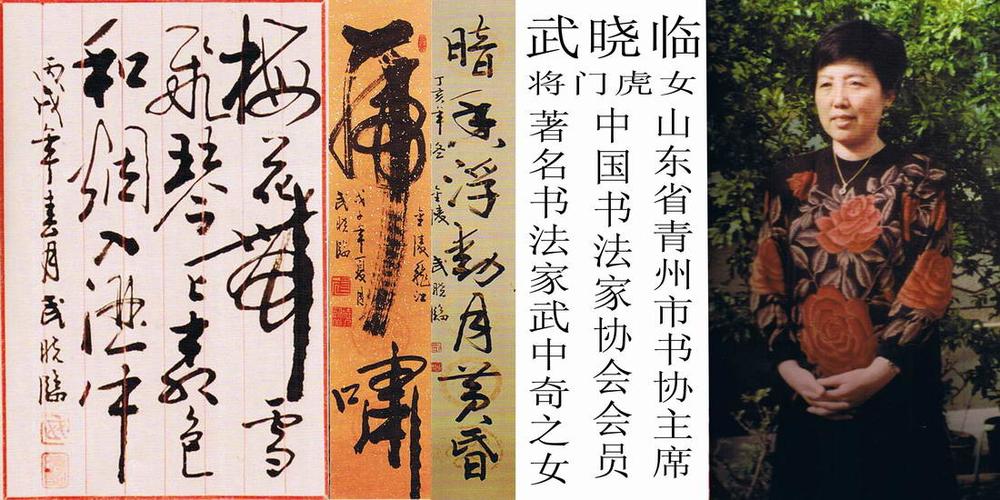 梅花舞雪
飛琴上柳色
和烟入酒中
丙戌年春月武晓临
虎啸
武晓临
暗香浮動月黄昏
丁亥年冬金陵武晓临
武晓临
将门虎女
山东省青州市书协主席
中国书法家协会会员
著名书法家武中奇之女